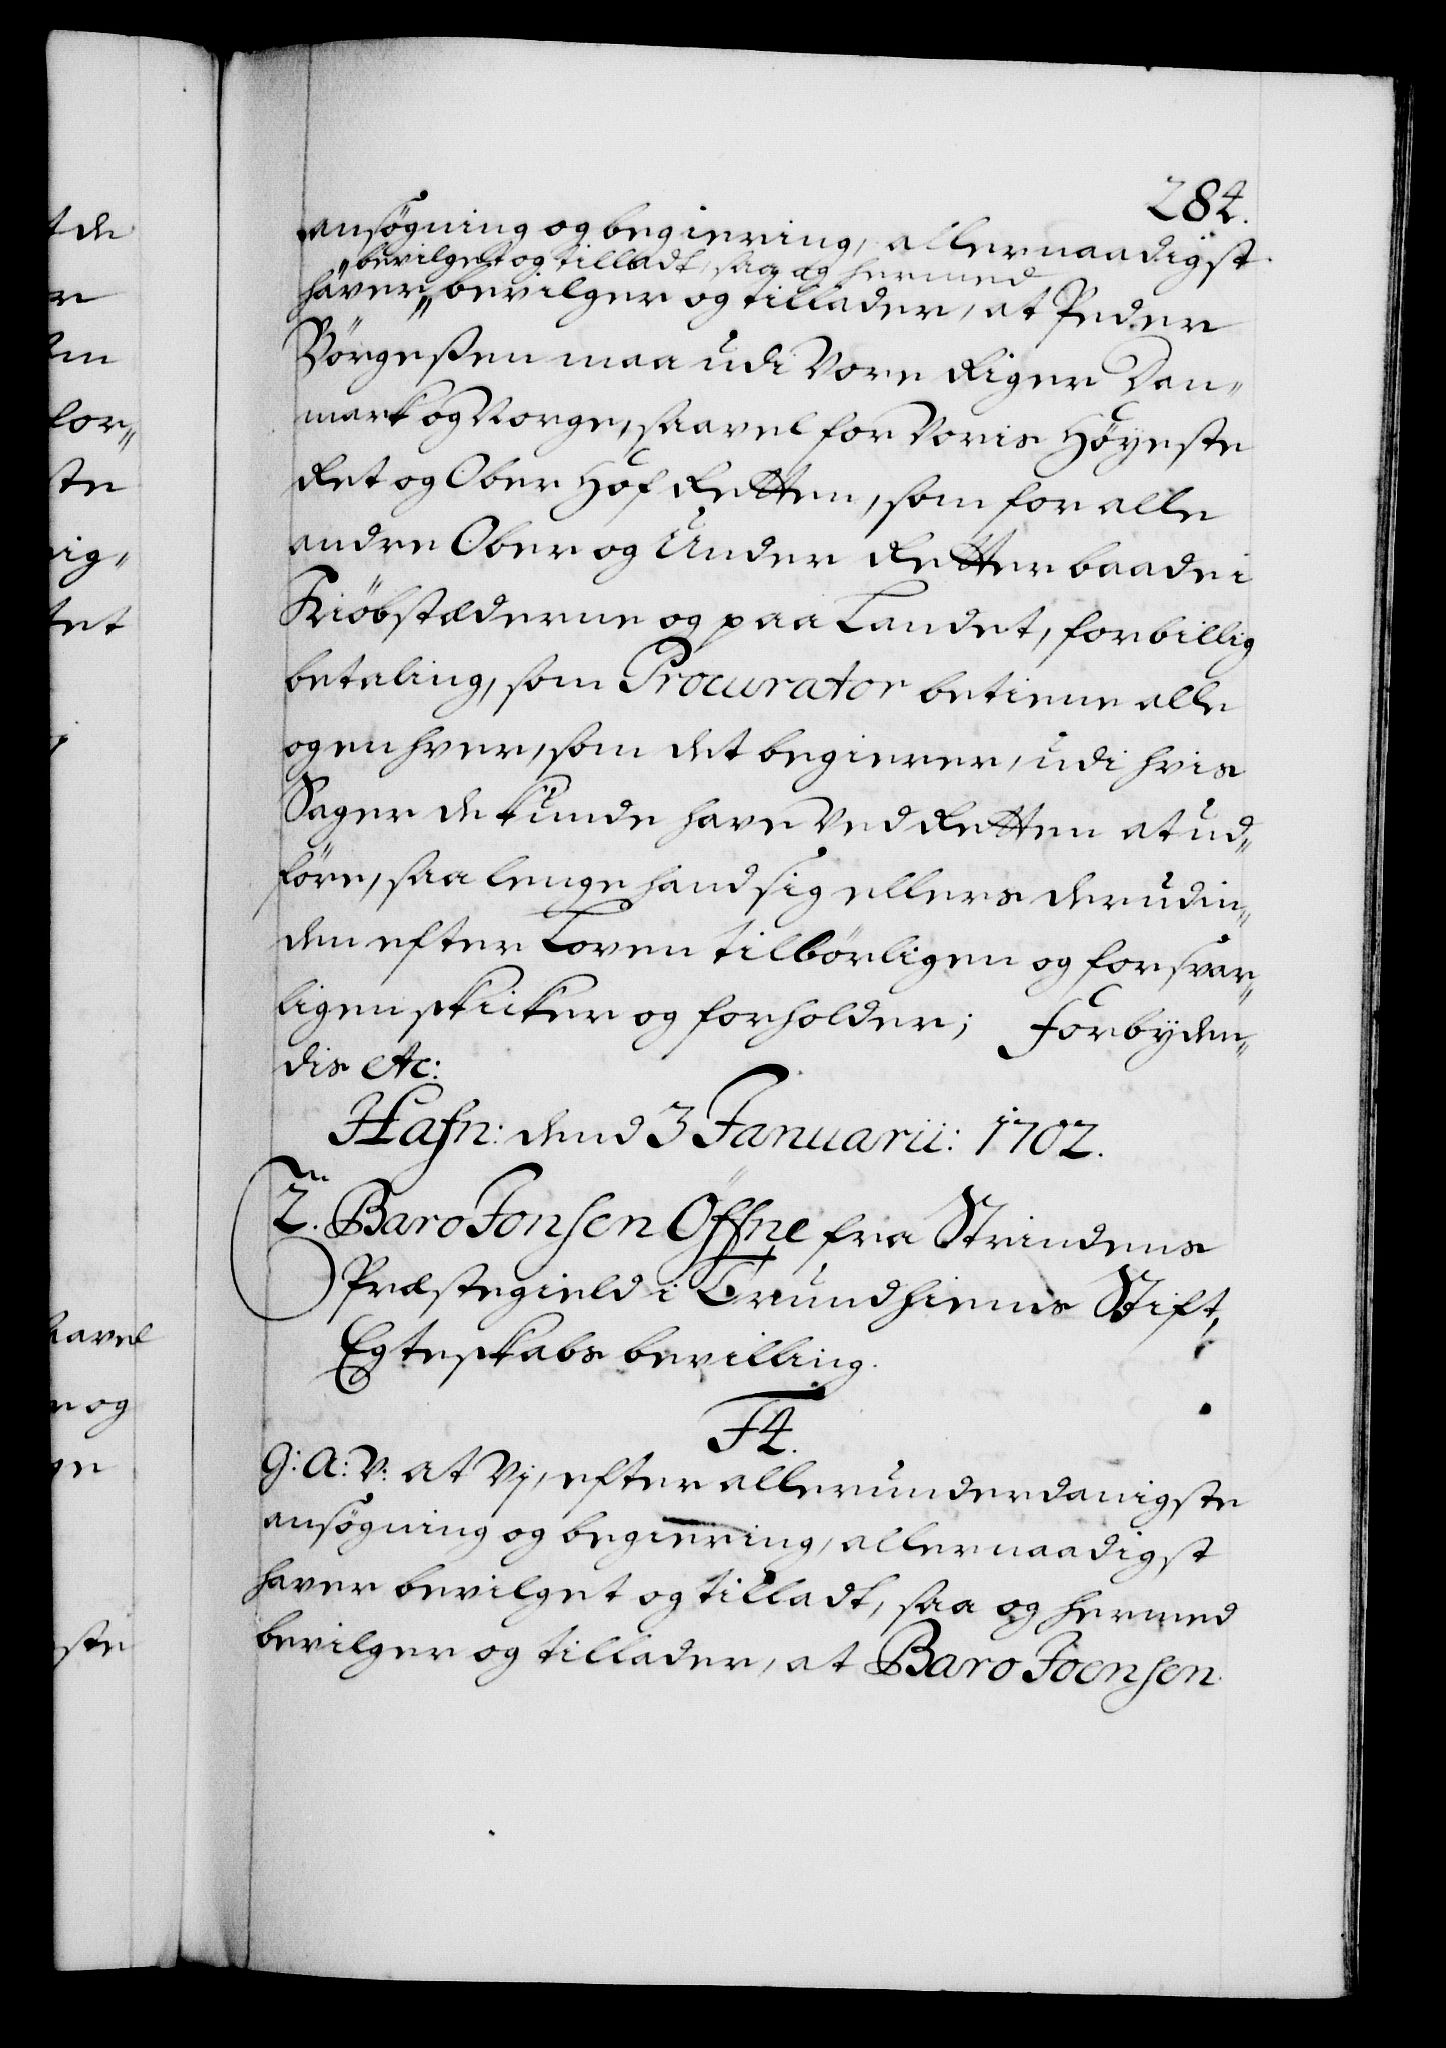 284.
ansögning og begiering, allernaadigst
bevilget og tilladt, saa og hermed
hafver,, bevilger og tillader, at Peder
Börgessen maa udi Vore Riger Dan„
mark og Norge, saavel for Voris Höyeste
Ret og Ober Hof Retten, som for alle
andre Ober og Under Retter baade i
Kiöbstæderne og paa Landet, for billig
betaling, som Procurator betiene alle
og en hver, som det begierer, udi hvis
Sager de kunde have Ved Retten at ud„
före, saa lenge hand sig ellers derudin„
den efter Loven tilbörligen og forsvar„
ligen skicker og forholder; Forbyden„
dis etc:
Hafn: dend 3 Januarii: 1702.
2. Baro Jonsen Öffne fra Strindens
Præstegield i Trundhiems Stift,
Egteskabs bevilling.
F4.
G: A: V: at Vj, efter allerunderdanigste
ansögning og begiering, allernaadigst
haver bevilget og tilladt, saa og hermed
bevilger og tillader, at Baro Joensen